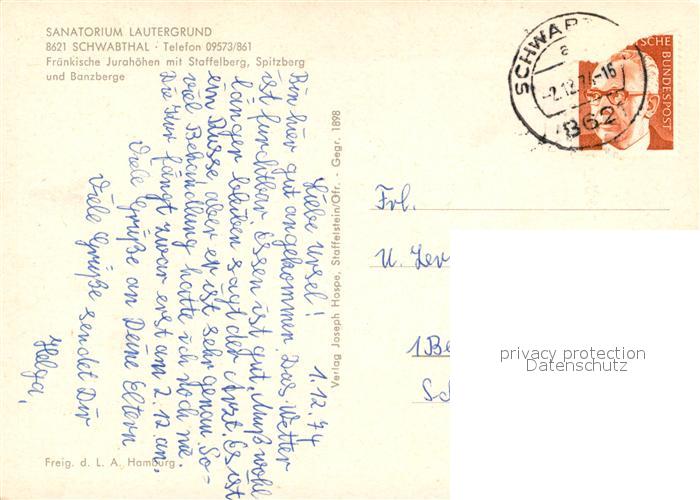 SANATORIUM LAUTERGRUND
8621 SCHWABTHAL · Telefon 09573/861
Fränkische Jurahöhen mit Staffelberg, Spitzberg
und Banzberge
1.12.74
Liebe Ursel!
Bin hier gut angekommen. Das Wetter
ist furchtbar Essen ist gut. Muß wohl
länger bleiben sagt der Arzt. Es ist
ein Russe aber er ist sehr genau. So-
viel Behandlung hatte ich noch nie.
Die Kur fängt zwar erst am 2.12 an.
Viele Grüße an Deine Eltern
Viele Grüße sendet Dir
Helga.
Freig. d. L. A. Hamburg
Verlag Joseph Hospe, Staffelstein/Ofr. - Gegr. 1898
SCHWAB
a
-2.12.74-16
862
DEUTSCHE BUNDESPOST
Frl.
U.
1 Be
Sc
privacy protection
Datenschutz